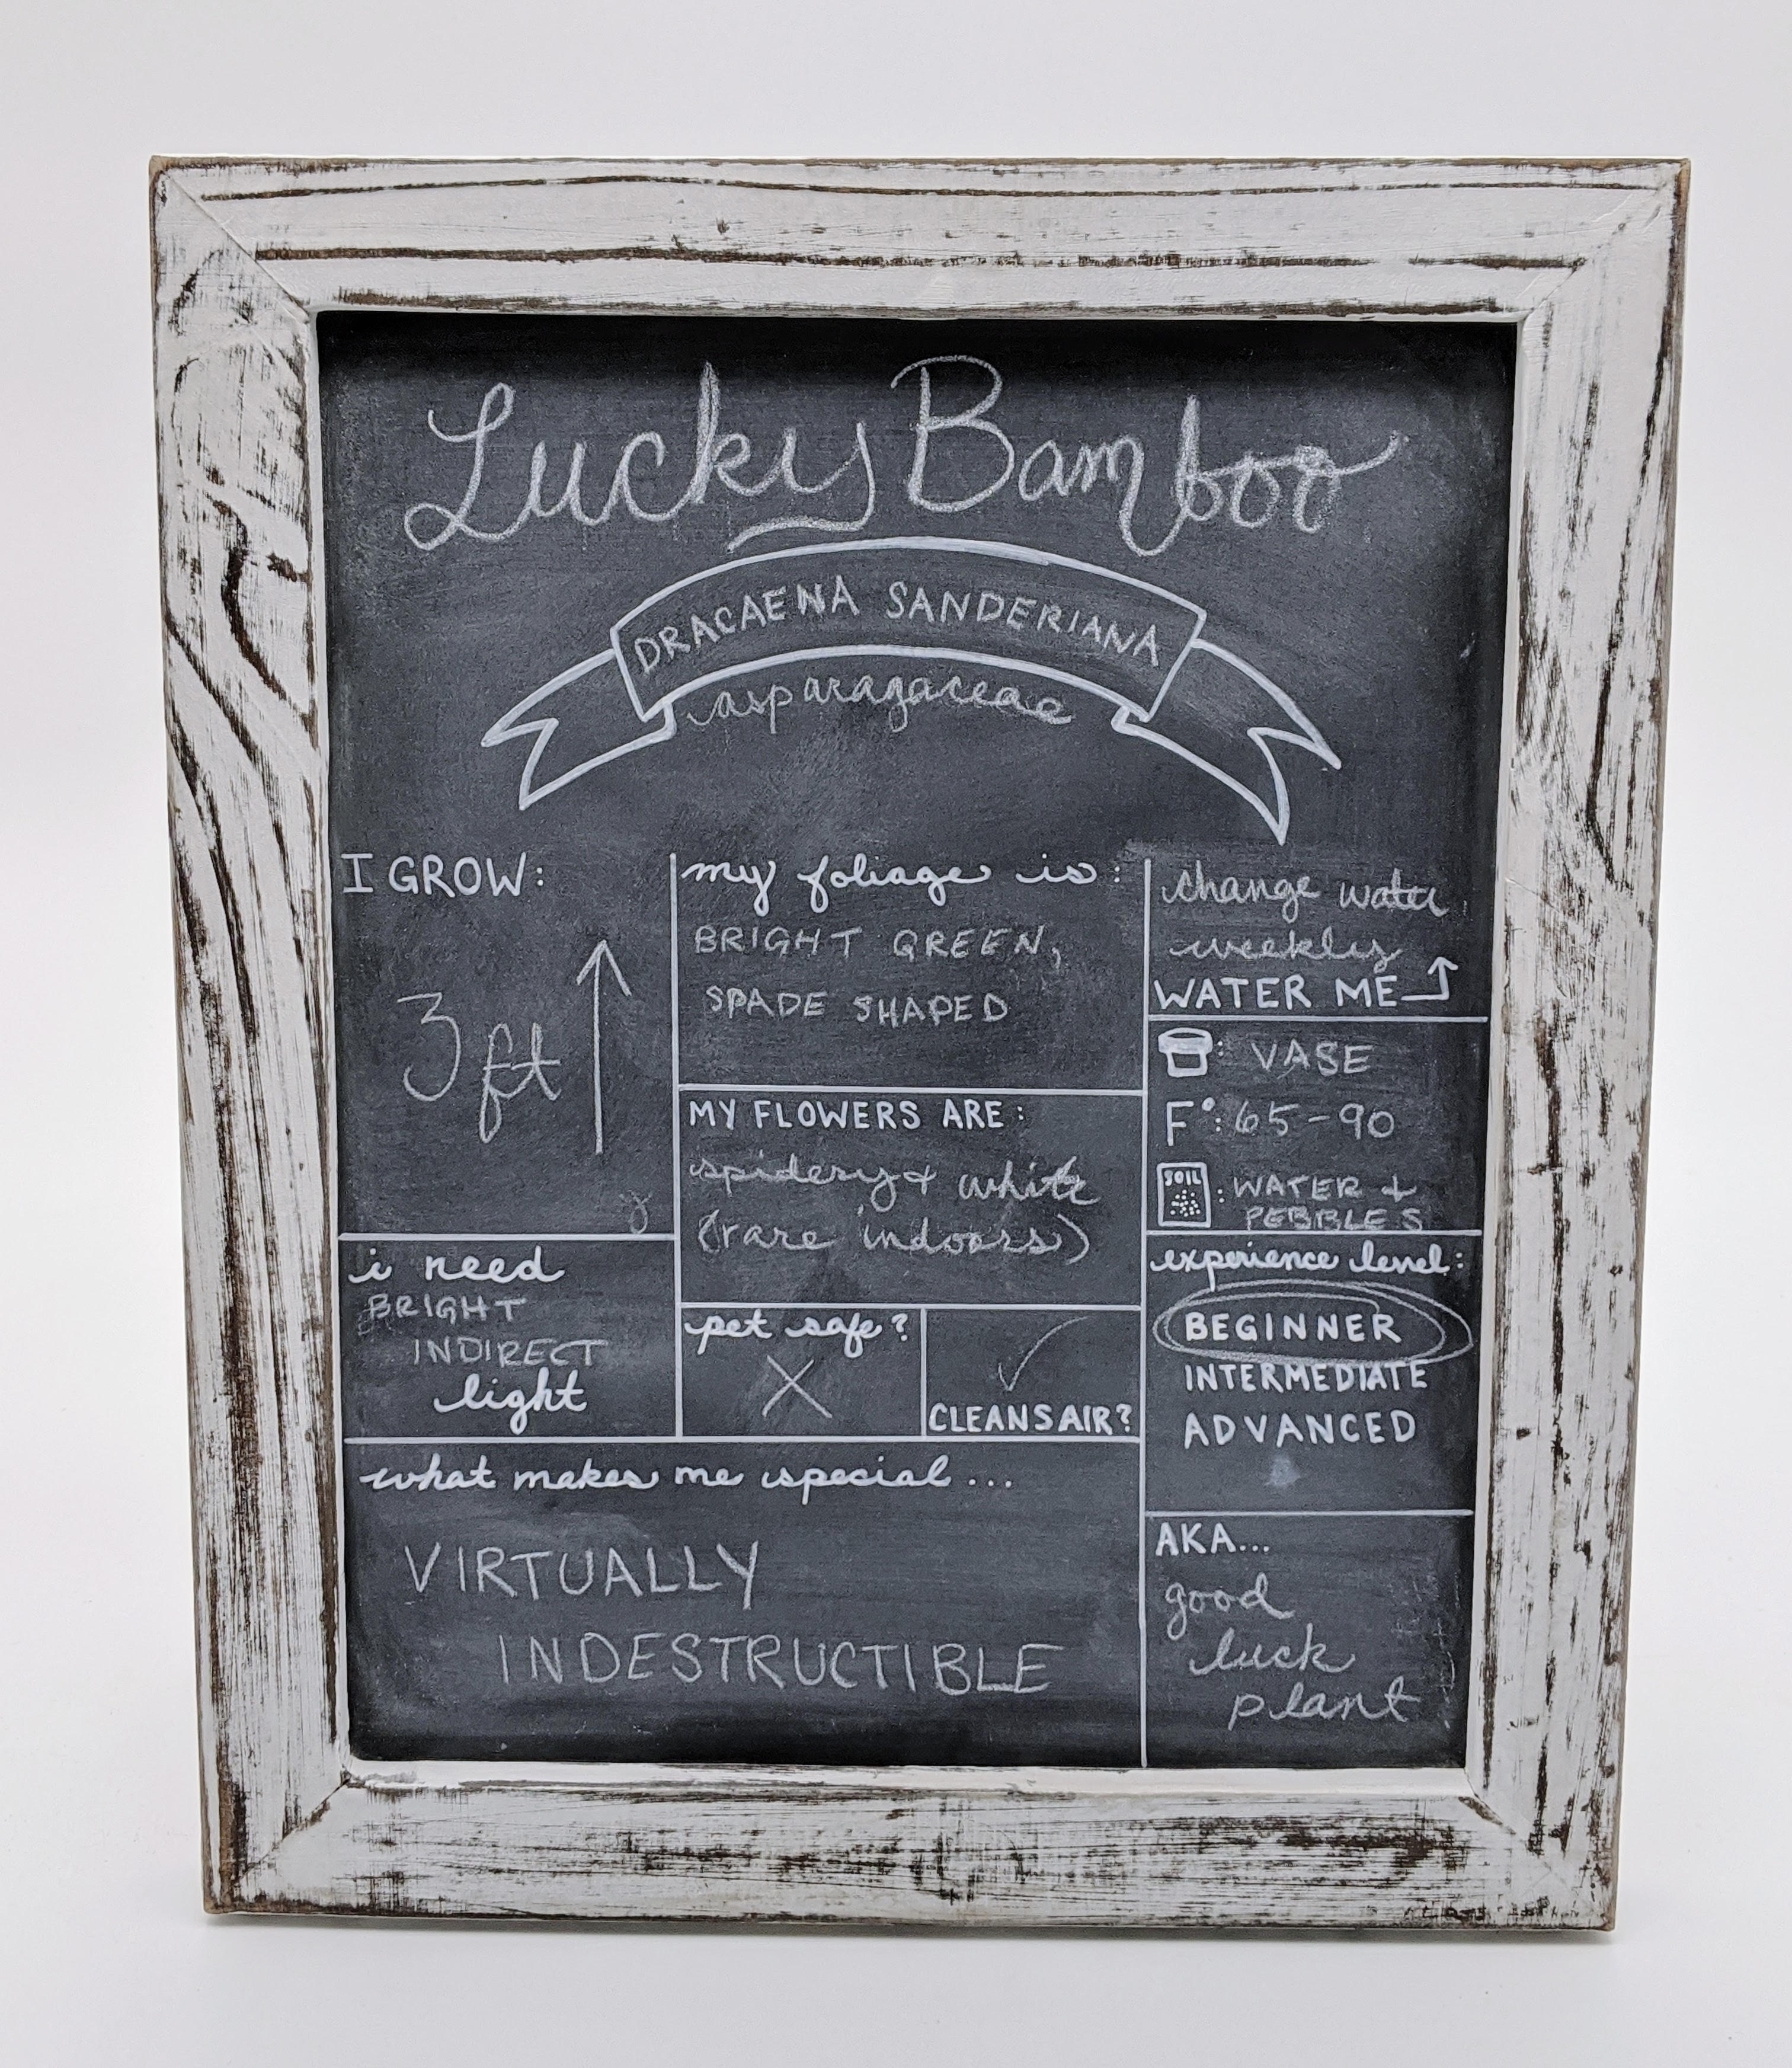 Lucky Bamboo
DRACAENA SANDERIANA
asparagaceae
I GROW:
3 ft
i need
BRIGHT
INDIRECT
light
my foliage is:
BRIGHT GREEN,
SPADE SHAPED
MY FLOWERS ARE:
spidery + white
(rare indoors)
pet safe?
X
CLEANS AIR?
what makes me special...
VIRTUALLY
INDESTRUCTIBLE
change water
weekly
WATER ME
: VASE
F°: 65-90
SOIL : WATER +
PEBBLES
experience level:
BEGINNER
INTERMEDIATE
ADVANCED
AKA...
good
luck
plant